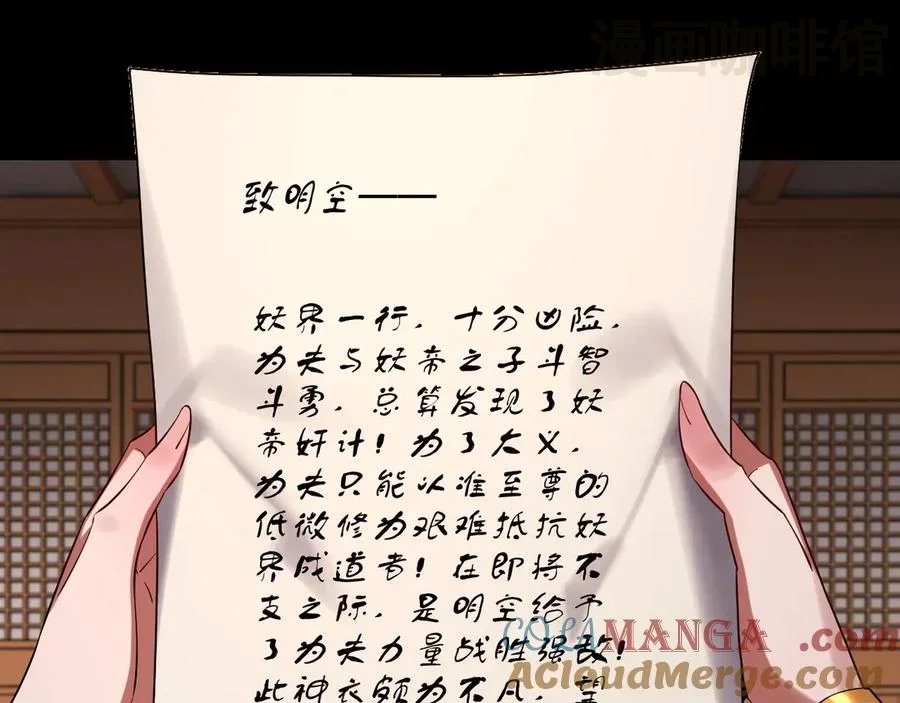 漫画咖啡馆
致明空——
妖界一行，十分凶险，
为夫与妖帝之子斗智
斗勇，总算发现了妖
帝奸计！为了大义，
为夫只能以准至尊的
低微修为艰难抵抗妖
界成道者！在即将不
支之际，是明空给予
了为夫力量战胜强敌！
此神衣颇为不凡，望
COLAMANGA.com
AcloudMerge.com